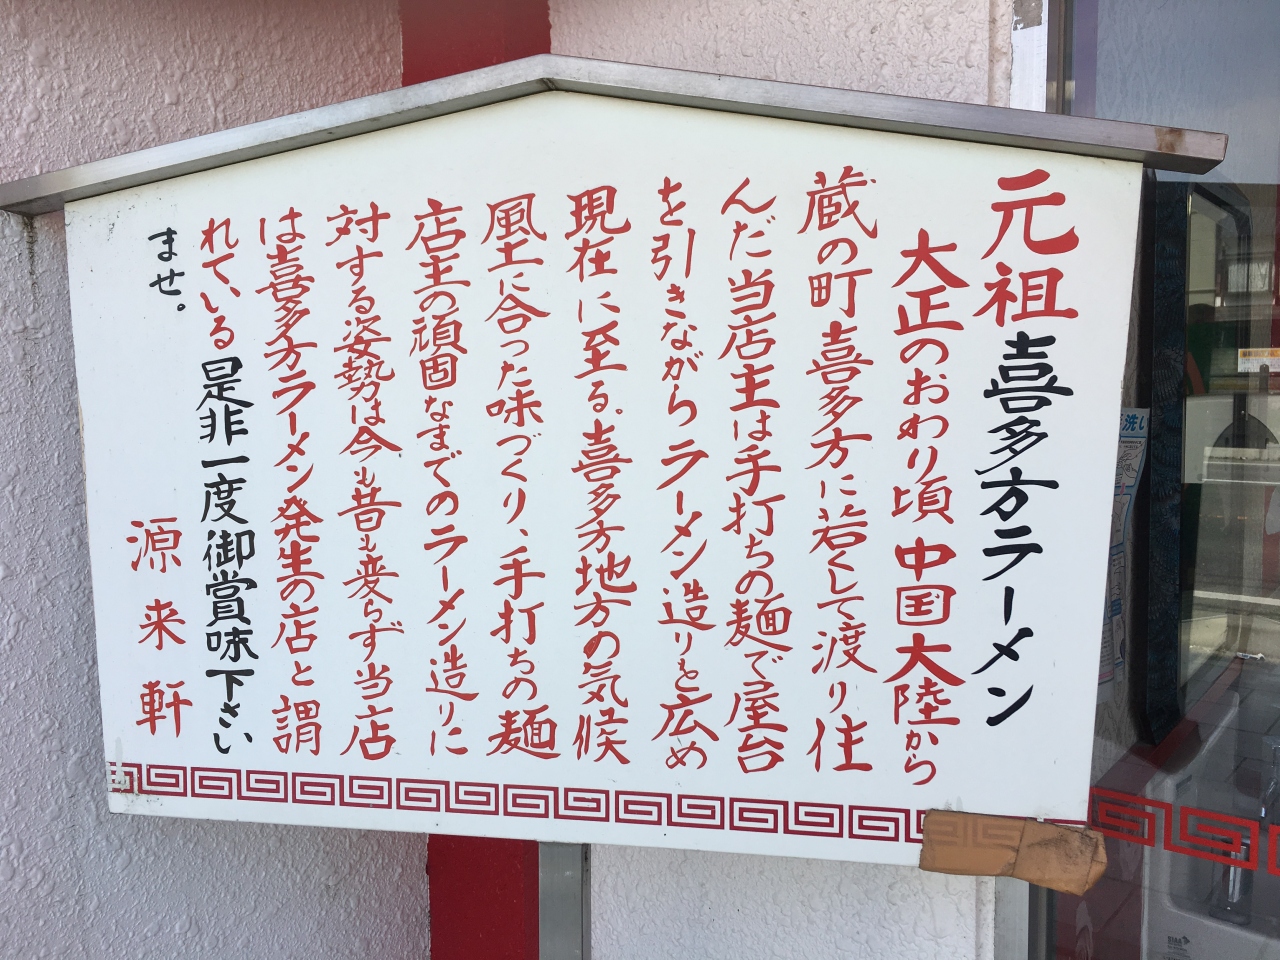 元祖喜多方ラーメン
大正のおわり頃中国大陸から
蔵の町喜多方に若くして渡り住
んだ当店主は手打ちの麺で屋台
を引きながらラーメン造りを広め
現在に至る。喜多方地方の気候
風土に合った味づくり、手打ちの麺
店主の頑固なまでのラーメン造りに
対する姿勢は今も昔も変らず当店
は喜多方ラーメン発生の店と謂
れている是非一度御賞味下さい
ませ。
源来軒
洗し